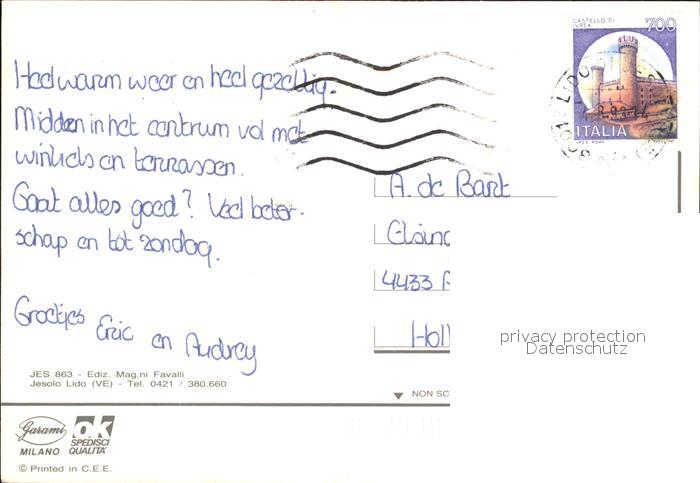 Heel warm weer en heel gezellig.
Midden in het centrum vol met
winkels en terrassen.
Gaat alles goed? Veel beter-
schap en tot zondag.
Groetjes Eric en Audrey
JES 863 - Ediz. Mag.ni Favalli
Jesolo Lido (VE) - Tel. 0421 / 380.660
Garami
MILANO
ok
SPEDISCI
QUALITA'
© Printed in C.E.E.
CASTELLO DI
IVREA
700
ITALIA
A. de Bart
4433
Holl
NON SC
privacy protection
Datenschutz